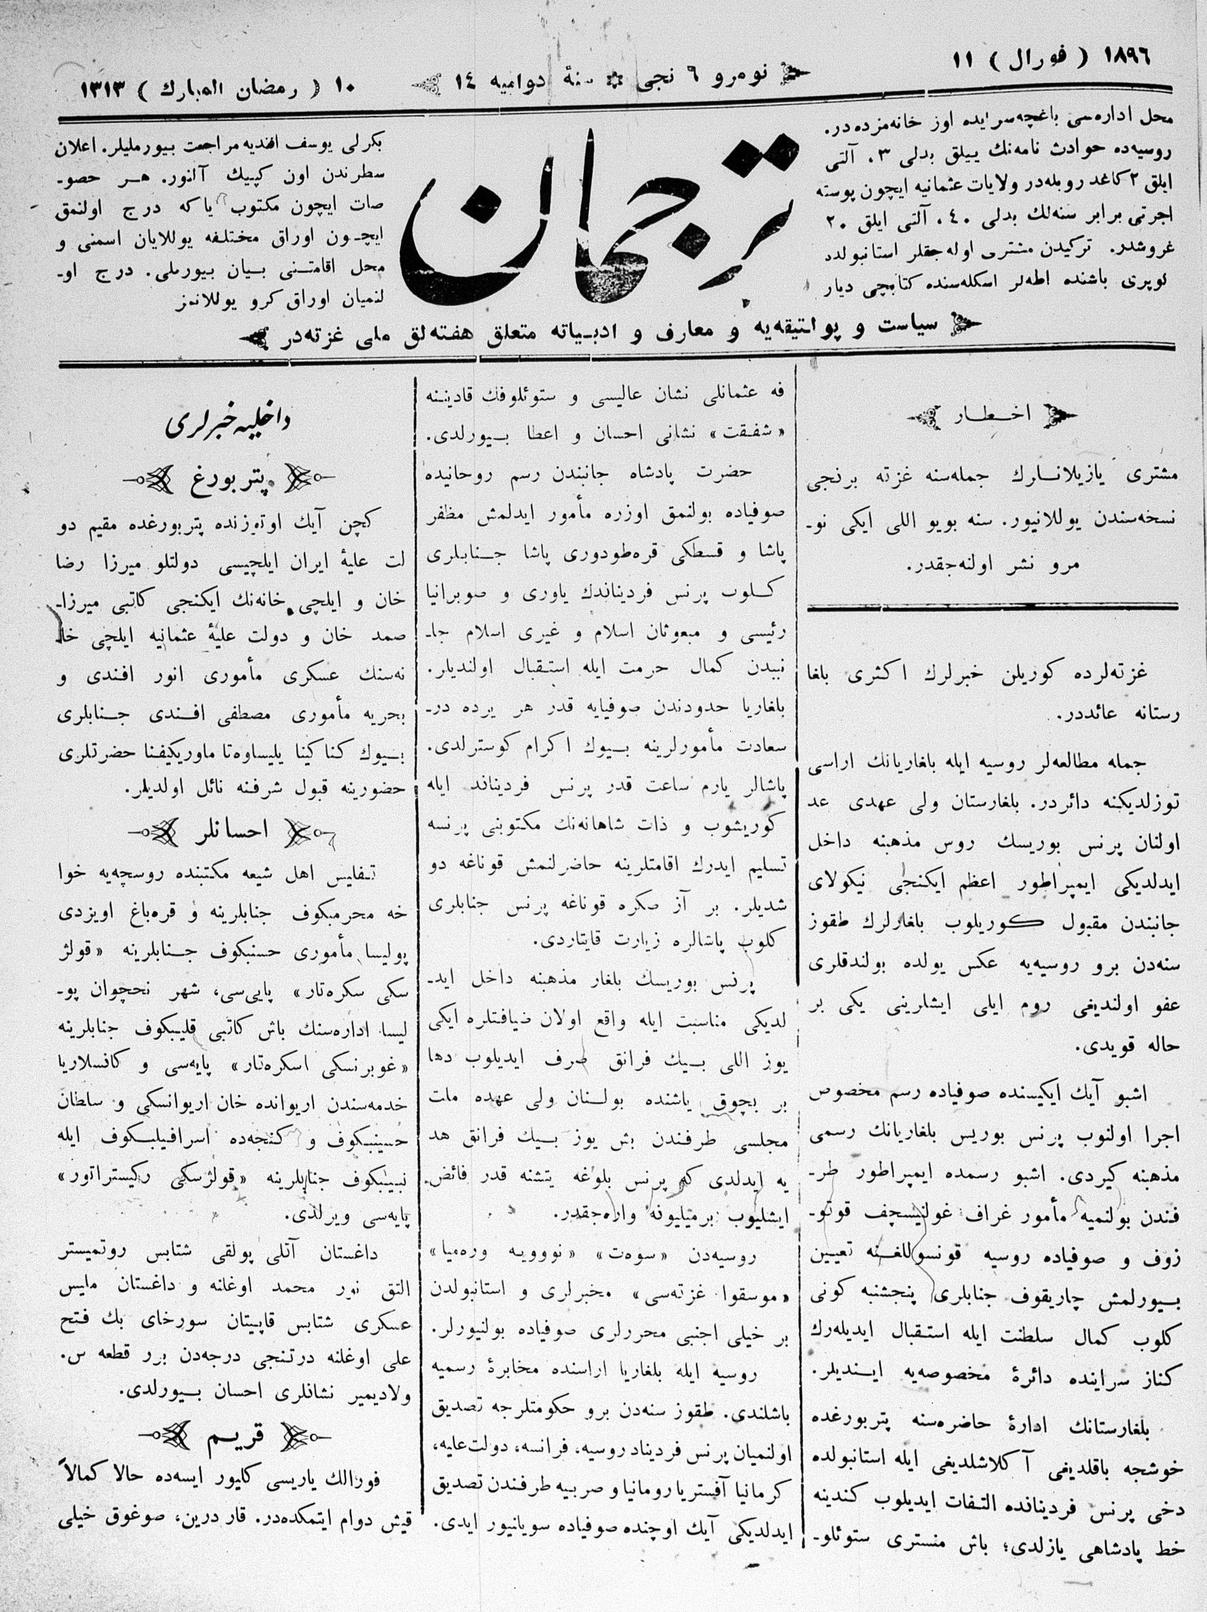 ١٨٩٦ ( فورال ) ١١
نومرو ٦ نجى ✼ سنهٔ دواميه ١٤
١٠ ( رمضان المبارك ) ١٣١٣
محل اداره‌سى باغچه‌سرايده اوز خانه‌مزده در.
روسيه‌ده حوادث نامه‌نك ييلق بدلى ٣، آلتى
ايلق ٢ كاغد روبله‌در ولايات عثمانيه ايچون پوسته
اجرتى برابر سنه‌لك بدلى ٤٠، آلتى ايلق ٢٠
غروشدر. تركيدن مشترى اوله‌جقلر استانبولده
لوپرى باشنده اطه‌لر اسكله‌سنده كتابچى ديار
ترجمان
بكرلى يوسف افنديه مراجعت بيورمليلر. اعلان
سطرندن اون كپيك آلنور. هر حصو-
صات ايچون مكتوب ياكه درج اولنمق
ايچون اوراق مختلفه يوللايان اسمنى و
محل اقامتنى بيان بيورملى. درج او-
لنميان اوراق كرو يوللانمز
سياست و پولتيقه‌يه و معارف و ادبياته متعلق هفته‌لق ملى غزته‌در
اخطار
مشترى يازيلانلرك جمله‌سنه غزته برنجى
نسخه‌سندن يوللانيور. سنه بويو اللى ايكى نو-
مرو نشر اولنه‌جقدر.
غزته‌لرده كوريلن خبرلرك اكثرى بلغا
رستانه عائددر.
جمله مطالعه‌لر روسيه ايله بلغاريانك اراسى
توزلديكنه دائردر. بلغارستان ولى عهدى عد
اولنان پرنس بوريسك روس مذهبنه داخل
ايدلديكى ايمپراطور اعظم ايكنجى نيكولاى
جانبندن مقبول كوريلوب بلغارلرك طقوز
سنه‌دن برو روسيه‌يه عكس يولده بولندقلرى
عفو اولنديغى روم ايلى ايشلرينى يكى بر
حاله قويدى.
اشبو آيك ايكيسنده صوفياده رسم مخصوص
اجرا اولنوب پرنس بوريس بلغاريانك رسمى
مذهبنه كيردى. اشبو رسمده ايمپراطور طر-
فندن بولنميه مأمور غراف غولنيسچف قوتو-
زوف و صوفياده روسيه قونسوللغنه تعيين
بيورلمش چاريقوف جنابلرى پنجشنبه كونى
كلوب كمال سلطنت ايله استقبال ايديله‌رك
كناز سراينده دائرهٔ مخصوصه‌يه اينديلر.
بلغارستانك ادارهٔ حاضره‌سنه پتربورغده
خوشجه باقلديغى آكلاشلديغى ايله استانبولده
دخى پرنس فرديناند‌ه التفات ايديلوب كندينه
خط پادشاهى يازلدى؛ باش منسترى ستوئلو-
فه عثمانلى نشان عاليسى و ستوئلوفك قاديننه
«شفقت» نشانى احسان و اعطا بيورلدى.
حضرت پادشاه جانبندن رسم روحانيده
صوفياده بولنمق اوزره مأمور ايدلمش مظفر
پاشا و قسطكى قره‌طودورى پاشا جنابلرى
كلوب پرنس فرديناندك ياورى و صوبرانيا
رئيسى و مبعوثان اسلام و غيرى اسلام جا-
نبيدن كمال حرمت ايله استقبال اولنديلر.
بلغاريا حدودندن صوفيايه قدر هر يرده در-
سعادت مأمورلرينه بيوك اكرام كوسترلدى.
پاشالر يارم ساعت قدر پرنس فرديناند ايله
كوريشوب و ذات شاهانه‌نك مكتوبنى پرنسه
تسليم ايدرك اقامتلرينه حاضرلنمش قوناغه دو
شديلر. بر آز صكره قوناغه پرنس جنابلرى
كلوب پاشالره زيارت قايتاردى.
پرنس بوريسك بلغار مذهبنه داخل ايد-
لديكى مناسبت ايله واقع اولان ضيافتلره ايكى
يوز اللى بيك فرانق صرف ايديلوب دها
بر بچوق ياشنده بولنان ولى عهده ملت
مجلسى طرفندن بش يوز بيك فرانق هد
يه ايدلدى كه پرنس بلوغه يتشنه قدر فائض
ايشليوب برميليونه واره‌جقدر.
روسيه‌دن «سوه‌ت» «نووويه وره‌ميا»
«موسقوا غزته‌سى» مخبرلرى و استانبولدن
بر خيلى اجنبى محررلرى صوفياده بولنيورلر.
روسيه ايله بلغاريا اراسنده مخابرهٔ رسميه
باشلندى. طقوز سنه‌دن برو حكومتلرجه تصديق
اولنميان پرنس فرديناد روسيه، فرانسه، دولت‌عليه،
كرمانيا آفستريا رومانيا و صربيه طرفندن تصديق
ايدلديكى آيك اوچنده صوفياده سويانيور ايدى.
داخليه خبرلرى
پتربورغ
كچن آيك اوتوزنده پتربورغده مقيم دو
لت عليهٔ ايران ايلچيسى دولتلو ميرزا رضا
خان و ايلچى خانه‌نك ايكنجى كاتبى ميرزا-
صمد خان و دولت عليهٔ عثمانيه ايلچى خا-
نه‌سنك عسكرى مأمورى انور افندى و
بحريه مأمورى مصطفى افندى جنابلرى
بيوك كناكينا يليساوه‌تا ماوريكيفنا حضرتلرى
حضورينه قبول شرفنه نائل اولديلر.
احسانلر
تفليس اهل شيعه مكتبنده روسچه‌يه خوا
خه محرمبكوف جنابلرينه و قره‌باغ اويزدى
پوليسا مأمورى حسنبكوف جنابلرينه «قولژ
سكى سكره‌تار» پايى‌سى، شهر نخچوان پو-
ليسا اداره‌سنك باش كاتبى قليبكوف جنابلرينه
«غوبرنسكى اسكره‌تار» پايه‌سى و كانسلاريا
خدمه‌سندن اريوانده خان اريوانسكى و سلطان
حسينبكوف و كنجه‌ده اسرافيلبكوف ايله
نبيبكوف جنابلرينه «قولژسكى ركيستراتور»
پايه‌سى ويرلدى.
داغستان آتلى پولقى شتابس روتميستر
التق نور محمد اوغلنه و داغستان مايس
عسكرى شتابس قاپيتان سورخاى بك فتح
على اوغلنه درتنجى درجه‌دن برر قطعه س.
ولاديمير نشانلرى احسان بيورلدى.
قريم
فورالك ياريسى كليور ايسه‌ده حالا كمالاً
قيش دوام ايتمكده‌در. قار درين، صوغوق خيلى